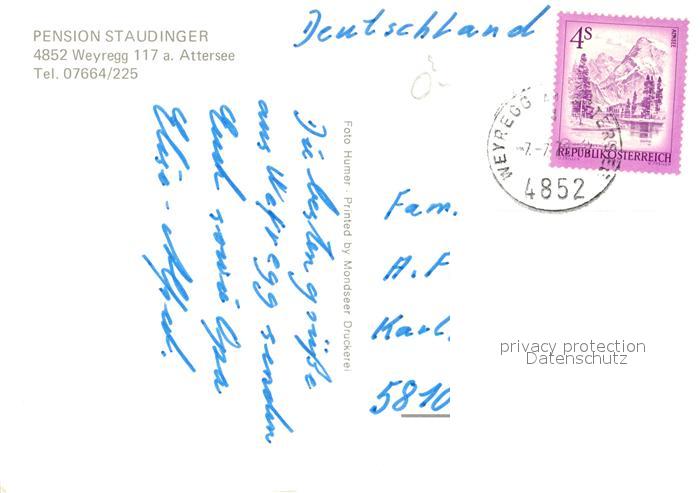 PENSION STAUDINGER
4852 Weyregg 117 a. Attersee
Tel. 07664/225
Deutschland
4S
ALMSEE
REPUBLIK ÖSTERREICH
WEYREGG AM ATTERSEE
4852
Foto Humer · Printed by Mondseer Druckerei
Die besten grüße
aus Weyregg senden
Euch sowie Opa
Elise -
Fam.
A.F
Karl.
5810
privacy protection
Datenschutz